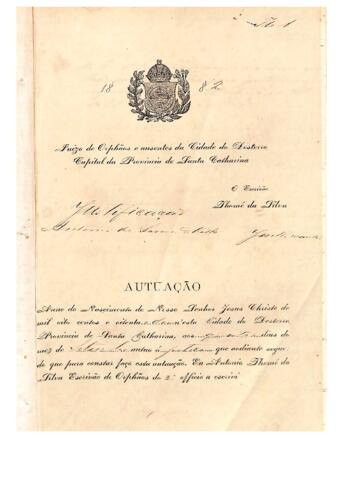 18 82
Juizo de Orphãos e ausentes da Cidade do Desterro
Capital da Provincia de Santa Catharina
O Escrivão
Thomé da Silva
Justificação
Antonio de
Justificante
AUTUAÇÃO
Anno do Nascimento de Nosso Senhor Jesus Christo de
mil oito centos e oitenta e dous n'esta Cidade do Desterro
Provincia de Santa Catharina, aos dias do
mez de autuo a petição que adiante segue,
do que para constar faço esta autuação. Eu Antonio Thomé da
Silva Escrivão de Orphãos do 2º officio a escrevi